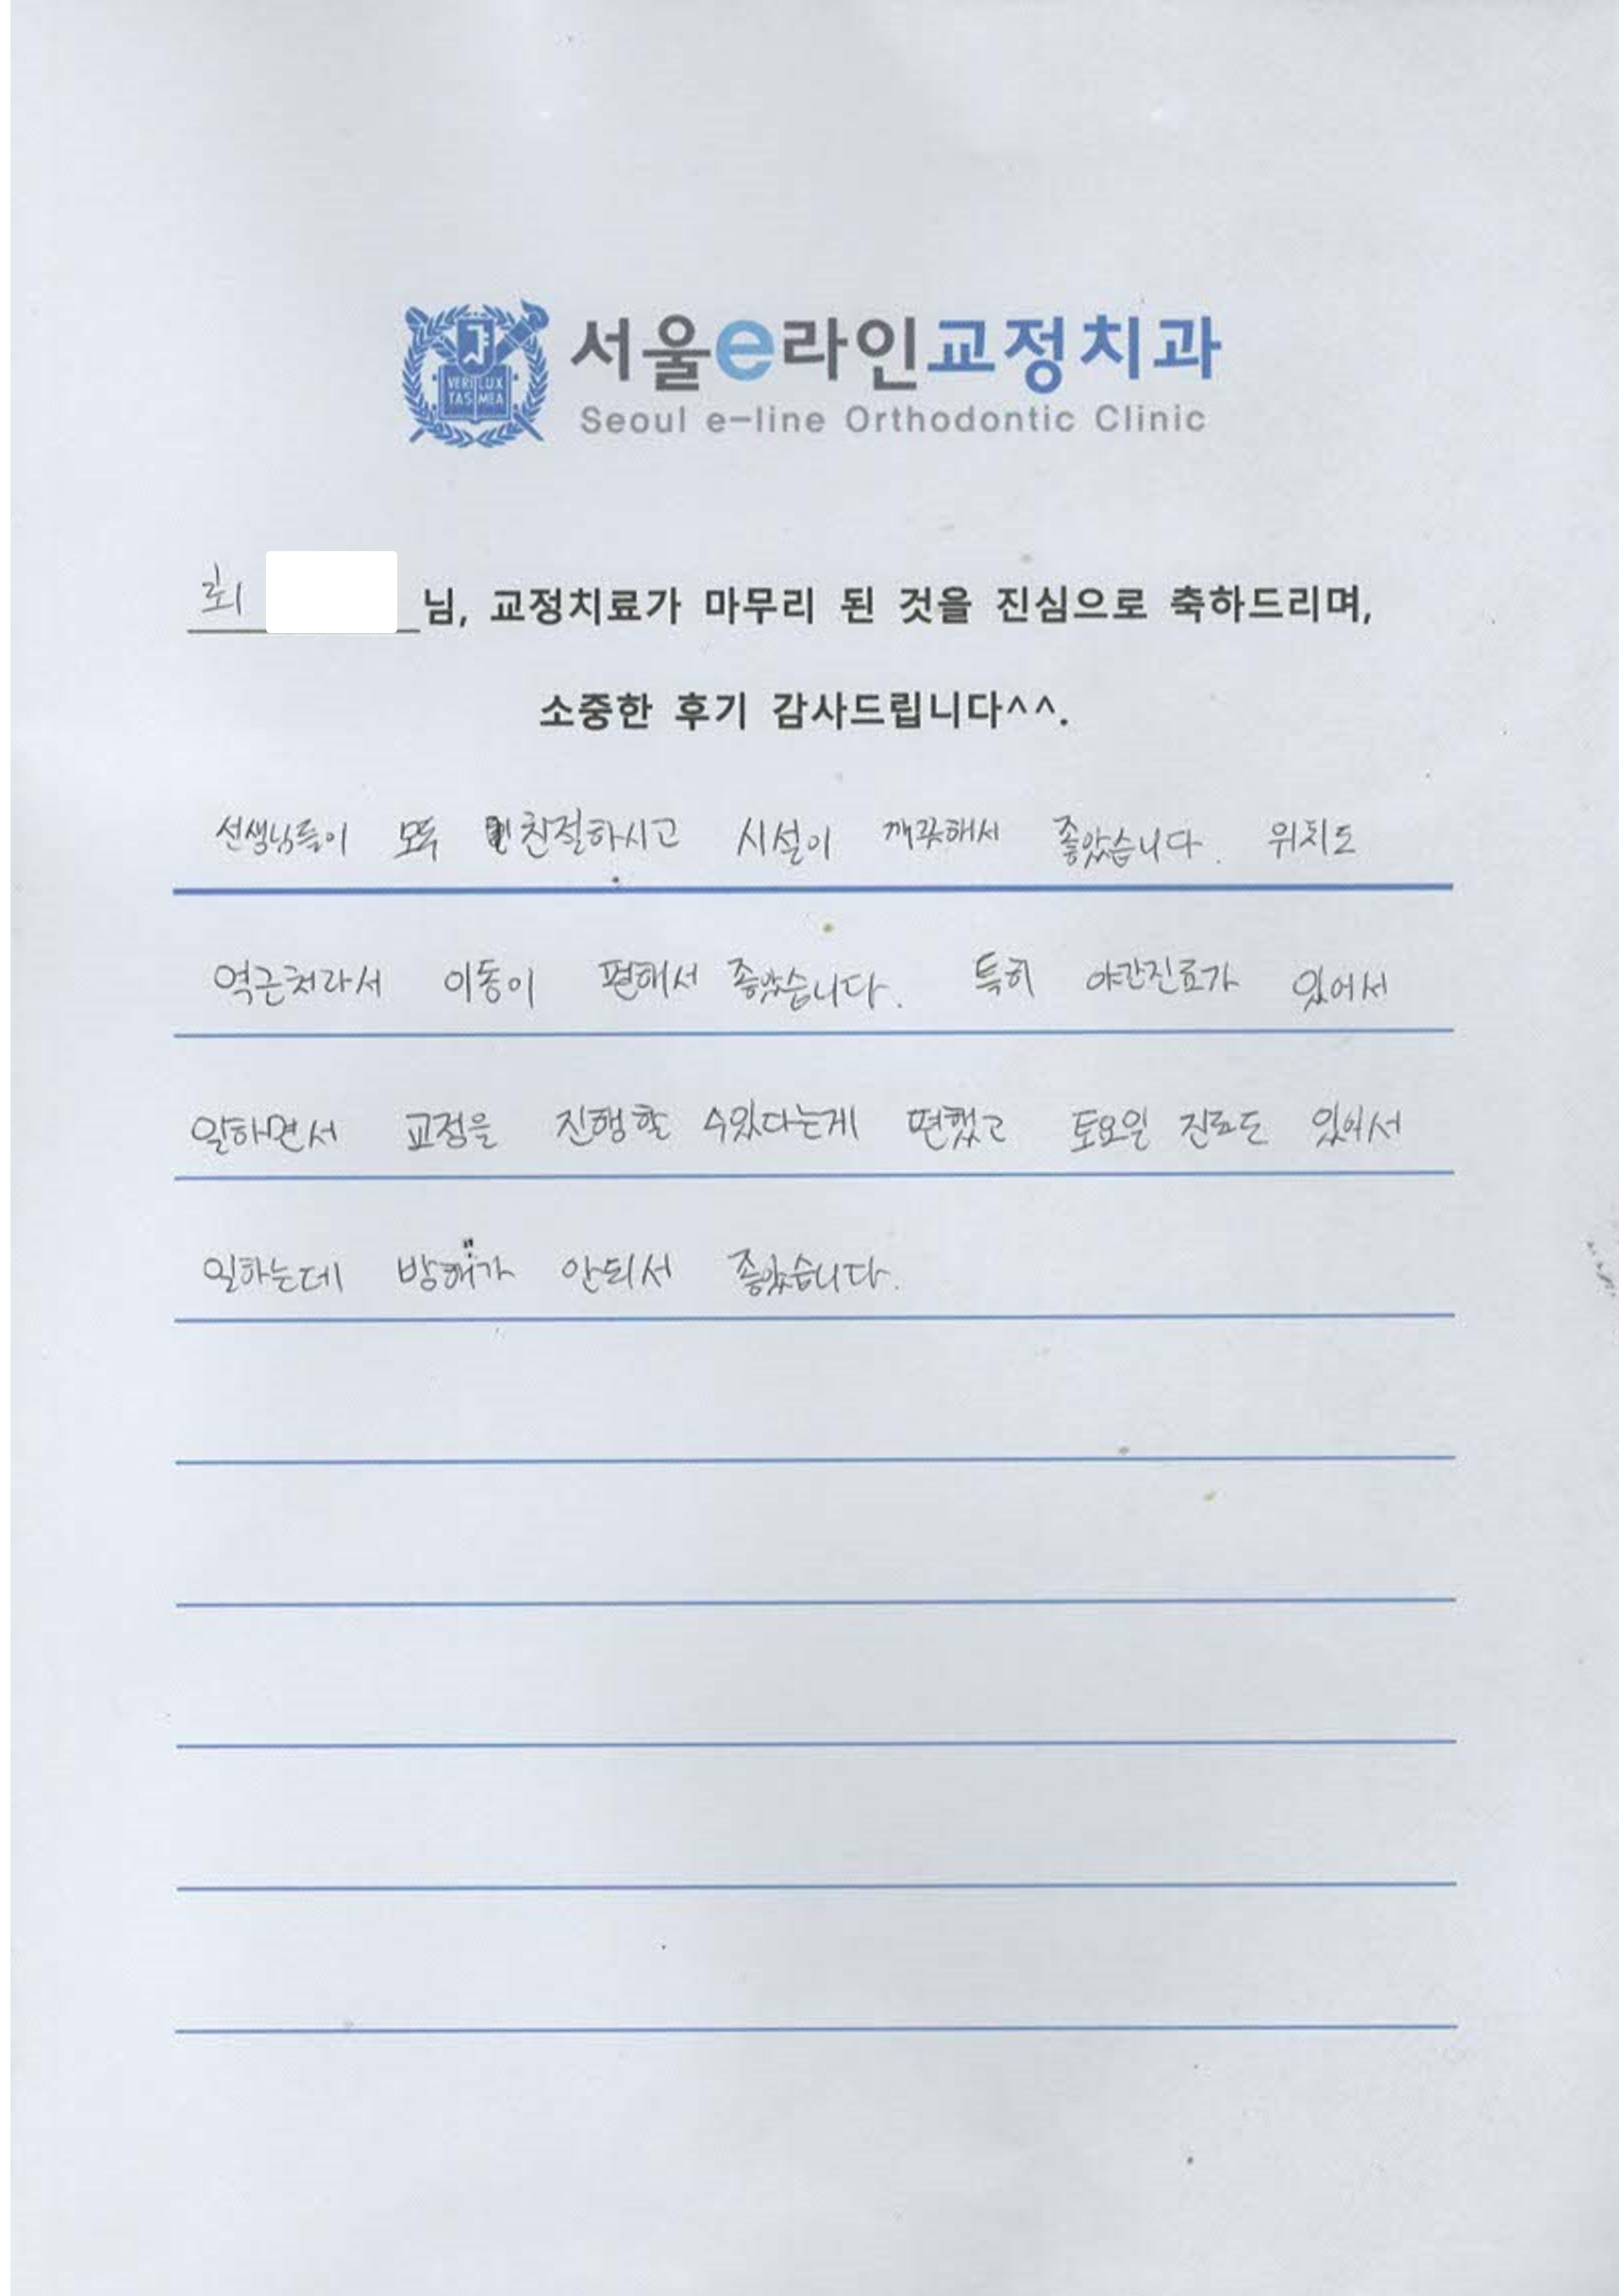 서울e라인교정치과
Seoul e-line Orthodontic Clinic
VERI LUX
TAS MEA
최 님, 교정치료가 마무리 된 것을 진심으로 축하드리며,
소중한 후기 감사드립니다^^.
선생님들이 모두 친절하시고 시설이 깨끗해서 좋았습니다. 위치도
역근처라서 이동이 편해서 좋았습니다. 특히 야간진료가 있어서
일하면서 교정을 진행할 수있다는게 편했고 토요일 진료도 있어서
일하는데 방해가 안되서 좋았습니다.